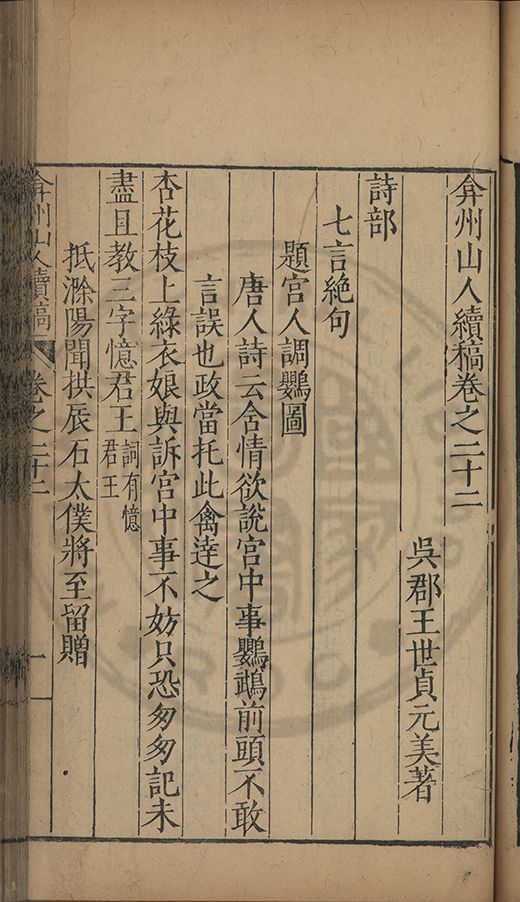 弇州山人續稿卷之二十二
吳郡王世貞元美著
詩部
七言絶句
題宮人調鸚圖
唐人詩云含情欲說宮中事鸚鵡前頭不敢
言誤也政當托此禽逹之
杏花枝上綠衣娘與訴宮中事不妨只恐匆匆記未
盡且教三字憶君王詞有憶
君王
抵滁陽聞拱辰石太僕將至留贈
弇州山人續稿 卷之二十二 一